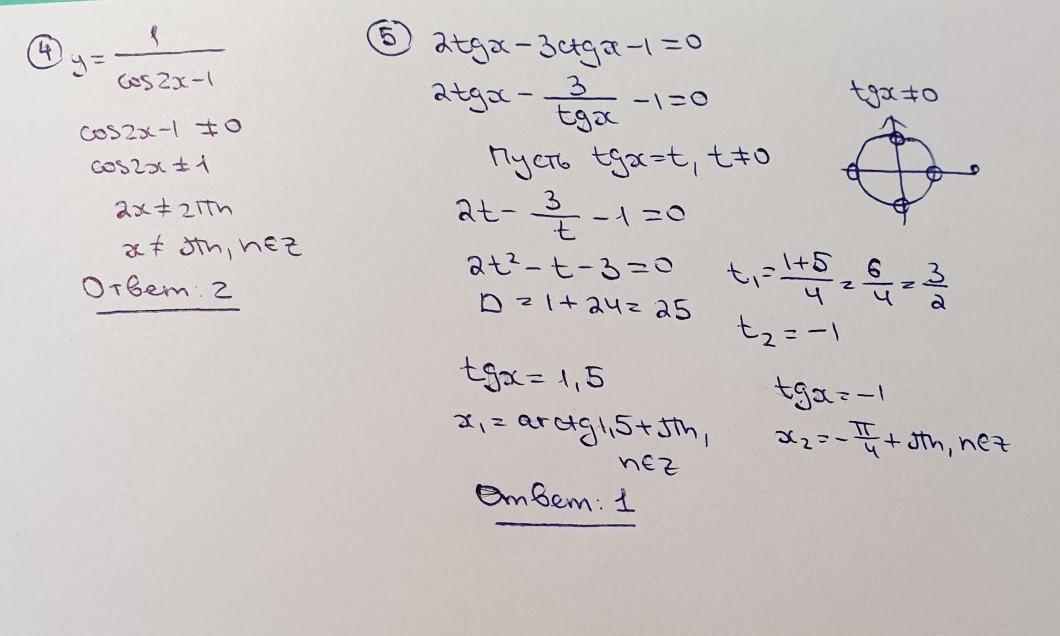 ④ y = 1/(cos2x-1)
cos2x-1 ≠ 0
cos2x ≠ 1
2x ≠ 2πn
x ≠ πn, n∈Z
Ответ: 2
⑤ 2tgx - 3ctgx - 1 = 0
2tgx - 3/tgx - 1 = 0
tgx ≠ 0
Пусть tgx = t, t ≠ 0
2t - 3/t - 1 = 0
2t² - t - 3 = 0
D = 1 + 24 = 25
t₁ = (1+5)/4 = 6/4 = 3/2
t₂ = -1
tgx = 1,5
x₁ = arctg1,5 + πn,
n∈Z
tgx = -1
x₂ = -π/4 + πn, n∈Z
Ответ: 1